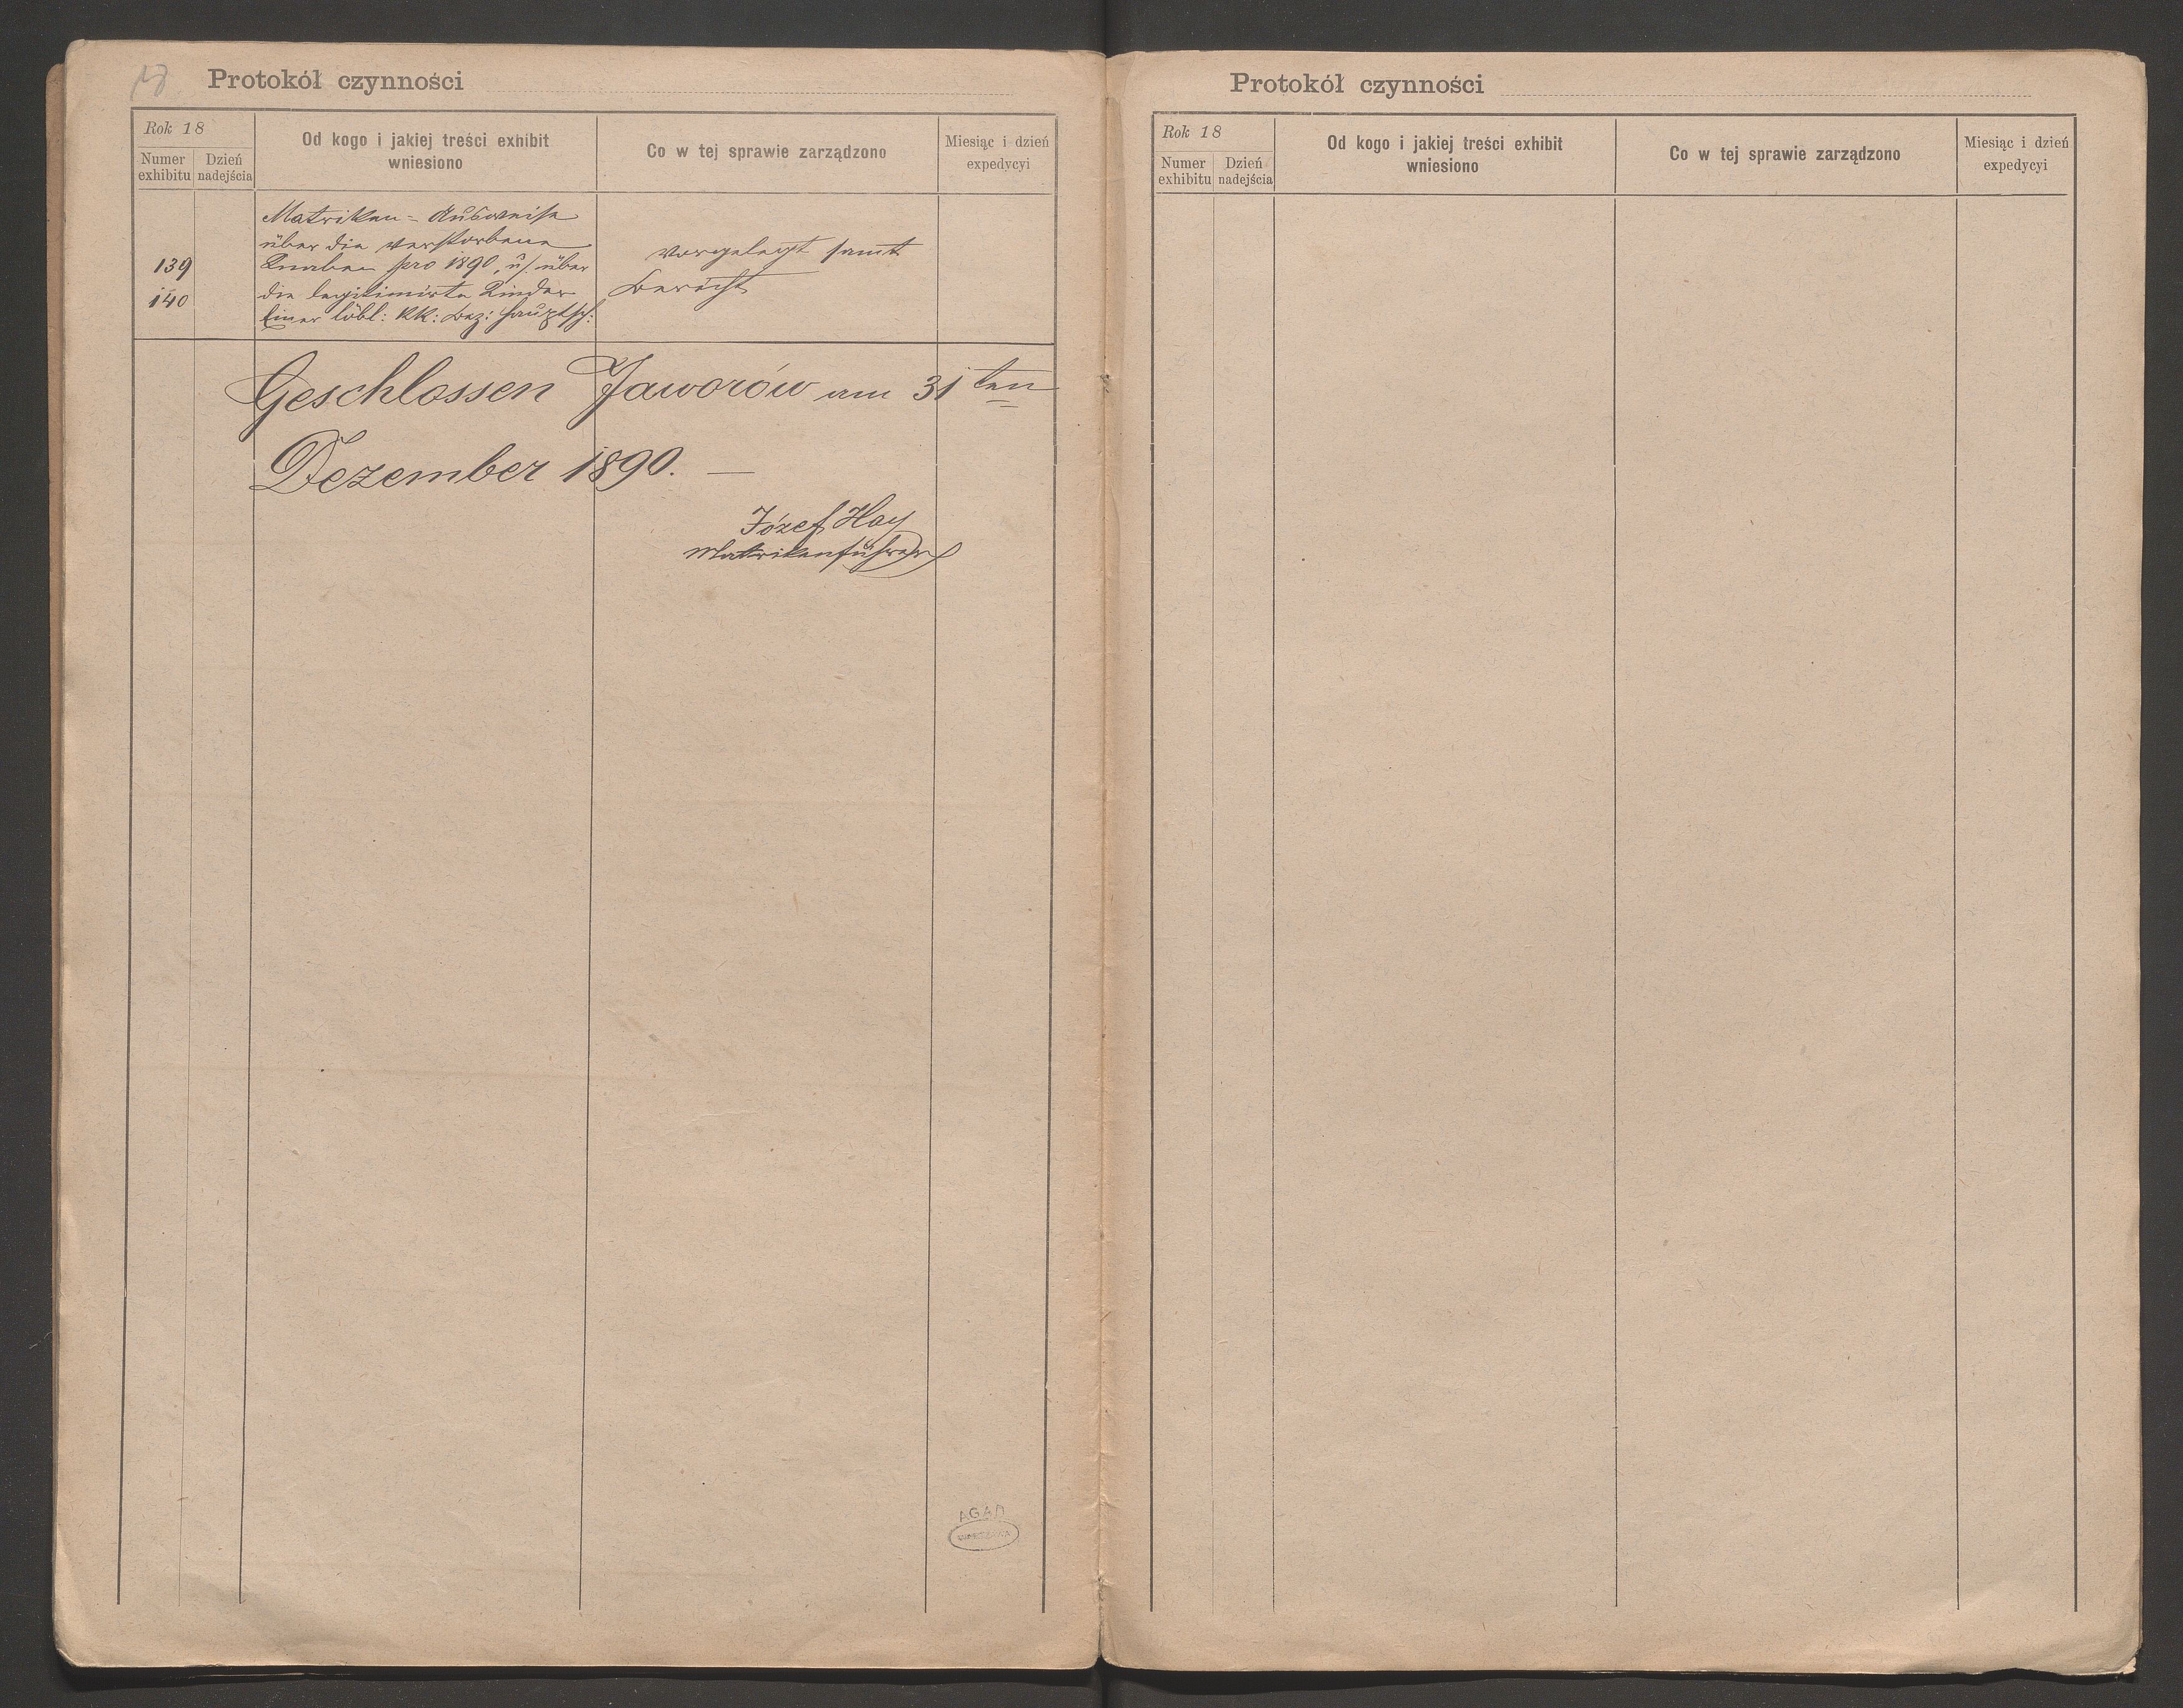 18
Protokół czynności
Rok 18
Numer exhibitu
Dzień nadejścia
Od kogo i jakiej treści exhibit
wniesiono
Co w tej sprawie zarządzono
Miesiąc i dzień
expedycyi
139
140
Matriken = Ausweise
über die verstorbene
Knaben pro 1890, u/. über
die legitimirte Kinder
Einer löbl: KK: Bez: Hauptsch:
vorgelegt samt
Bericht
Geschlossen Jaworów am 31ten
Dezember 1890. —
Józef Hay
Matrikenführer
AGAD
WARSZAWA
Protokół czynności
Rok 18
Numer exhibitu
Dzień nadejścia
Od kogo i jakiej treści exhibit
wniesiono
Co w tej sprawie zarządzono
Miesiąc i dzień
expedycyi